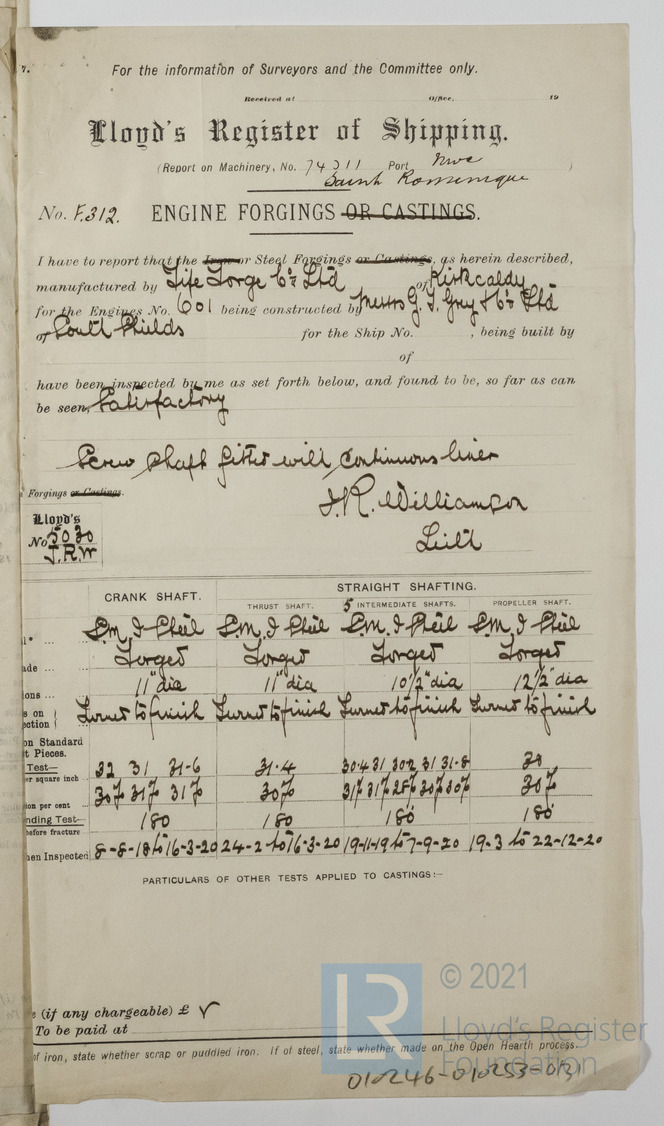 7.
For the information of Surveyors and the Committee only.
Received at Office, 19
Lloyd's Register of Shipping.
(Report on Machinery, No. 74311 Port Nwc )
Saint
No. F.312. ENGINE FORGINGS OR CASTINGS.
I have to report that the Iron or Steel Forgings or Castings, as herein described,
manufactured by Fife Forge Co Ltd of Kirkcaldy
for the Engines No. 601 being constructed by Messrs G. T. Grey & Co Ltd
of South Shields for the Ship No. , being built by
of
have been inspected by me as set forth below, and found to be, so far as can
be seen, Satisfactory
Screw shaft fitted with continuous liner
Forgings or Castings.
J.R. Williamson
Leith
Lloyd's
No 5030
J.R.W
CRANK SHAFT. STRAIGHT SHAFTING.
THRUST SHAFT. 5 INTERMEDIATE SHAFTS. PROPELLER SHAFT.
S.M. I Steel S.M. I Steel S.M. I Steel S.M. I Steel
ade ... Forged Forged Forged Forged
ons ... 11" dia 11" dia 10½" dia 12½" dia
s on
ection Turned to finish Turned to finish Turned to finish Turned to finish
on Standard
t Pieces.
Test— 32 31 31-6 31.4 30.4 31 30.2 31 31.8 30
er square inch
ion per cent 30% 31% 31% 30% 31% 31% 28% 30% 30% 30%
nding Test— 180 180 180 180
before fracture
hen Inspected 8-8-18 to 16-3-20 24-2- to 16-3-20 19-11-19 to 7-9-20 19.3 to 22-12-20
PARTICULARS OF OTHER TESTS APPLIED TO CASTINGS:—
e (if any chargeable) £
To be paid at
of iron, state whether scrap or puddled iron. If of steel, state whether made on the Open Hearth process.
LR
© 2021
Lloyd's Register
Foundation
010246-010253-031